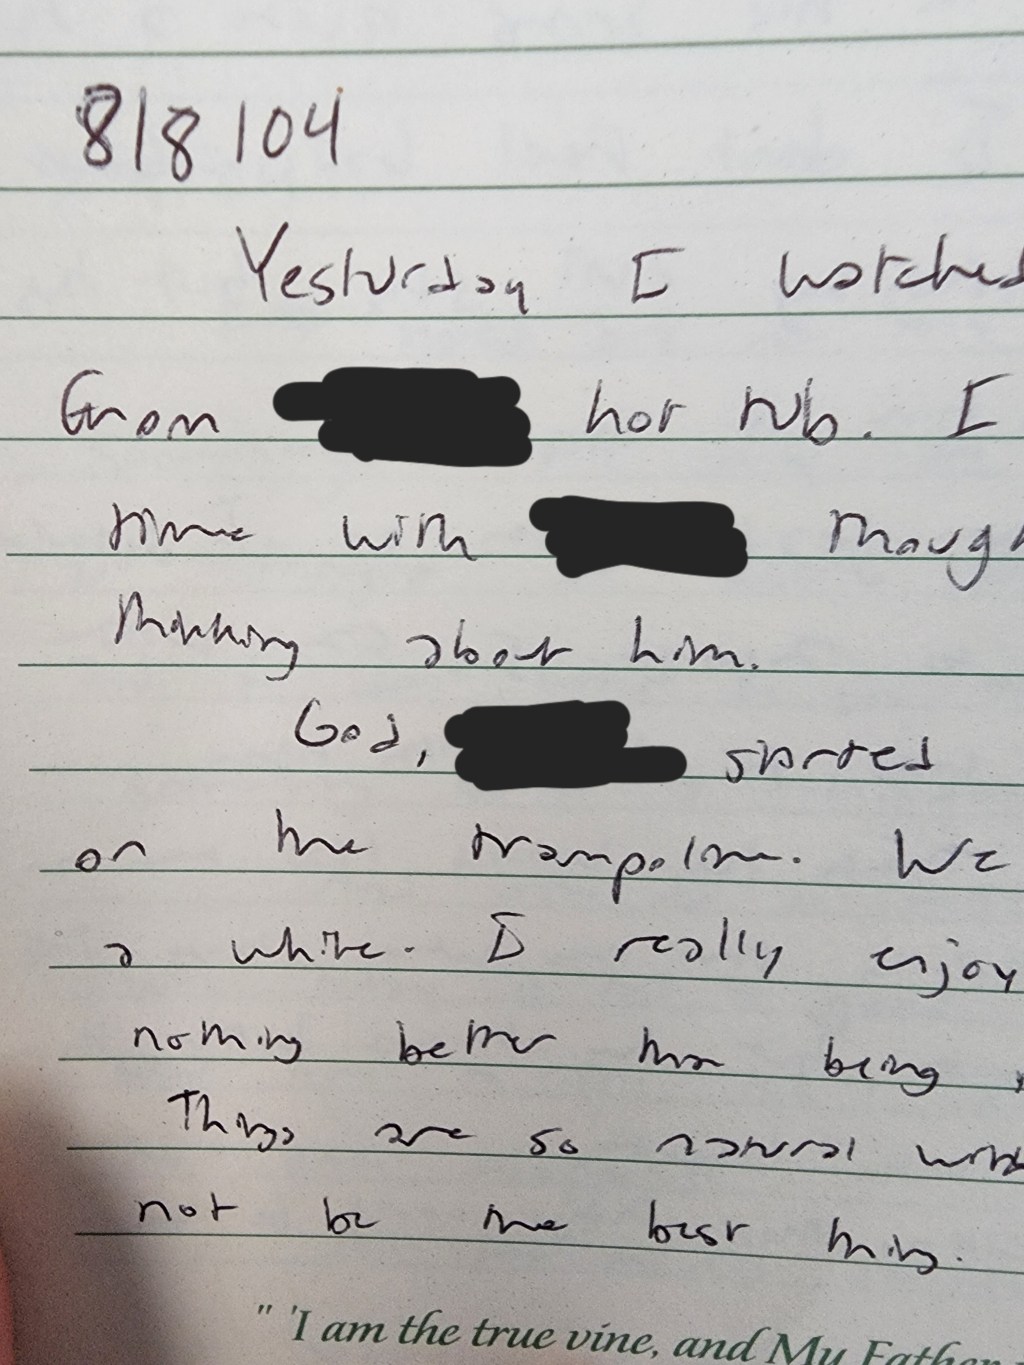 8/8/04
Yesturday I watched
from hot tub. I
time with though
thinking about him.
God, started
on the trampoline. We
a while. I really enjoy
nothing better than being
Things are so natural with
not be the best thing.
" 'I am the true vine, and My Father